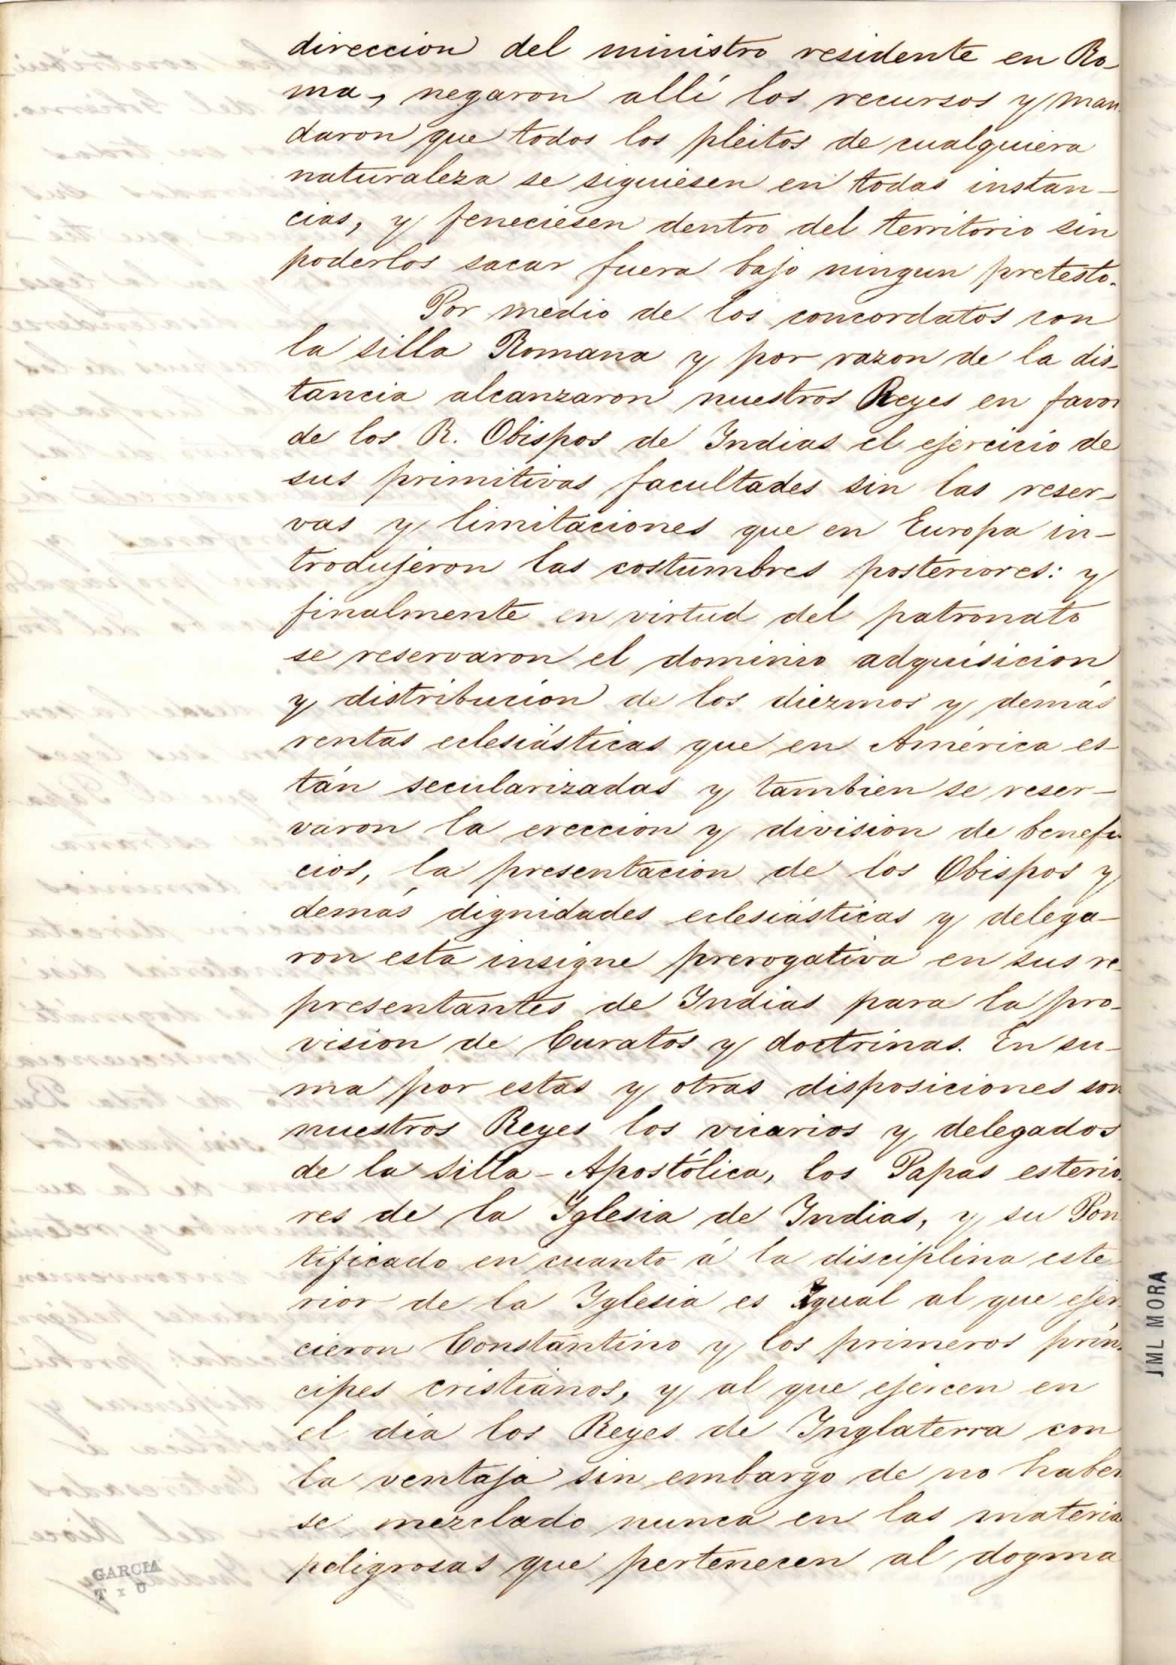 direccion del ministro residente en Ro-
ma, negaron allí los recursos y man-
daron que todos los pleitos de cualquiera
naturaleza se siguiesen en todas instan-
cias, y feneciesen dentro del territorio sin
poderlos sacar fuera bajo ningun pretesto.
Por medio de los concordatos con
la silla Romana y por razon de la dis-
tancia alcanzaron nuestros Reyes en favor
de los R. Obispos de Indias el ejercicio de
sus primitivas facultades sin las reser-
vas y limitaciones que en Europa in-
trodujeron las costumbres posteriores: y
finalmente en virtud del patronato
se reservaron el dominio adquisicion
y distribucion de los diezmos y demás
rentas eclesiásticas que en América es-
tán secularizadas y tambien se reser-
varon la ereccion y division de benefi-
cios, la presentacion de los Obispos y
demás dignidades eclesiásticas y delega-
ron esta insigne prerogativa en sus re-
presentantes de Indias para la pro-
vision de Curatos y doctrinas. En su-
ma por estas y otras disposiciones son
nuestros Reyes los vicarios y delegados
de la Silla-Apostólica, los Papas esterio-
res de la Iglesia de Indias, y su Pon-
tificado en cuanto á la disciplina este-
rior de la Iglesia es Igual al que ejer-
cieron Constantino y los primeros prín-
cipes cristianos, y al que ejercen en
el día los Reyes de Inglaterra con
la ventaja sin embargo de no haber-
se mezclado nunca en las materias
peligrosas que pertenecen al dogma
GARCIA
JML MORA